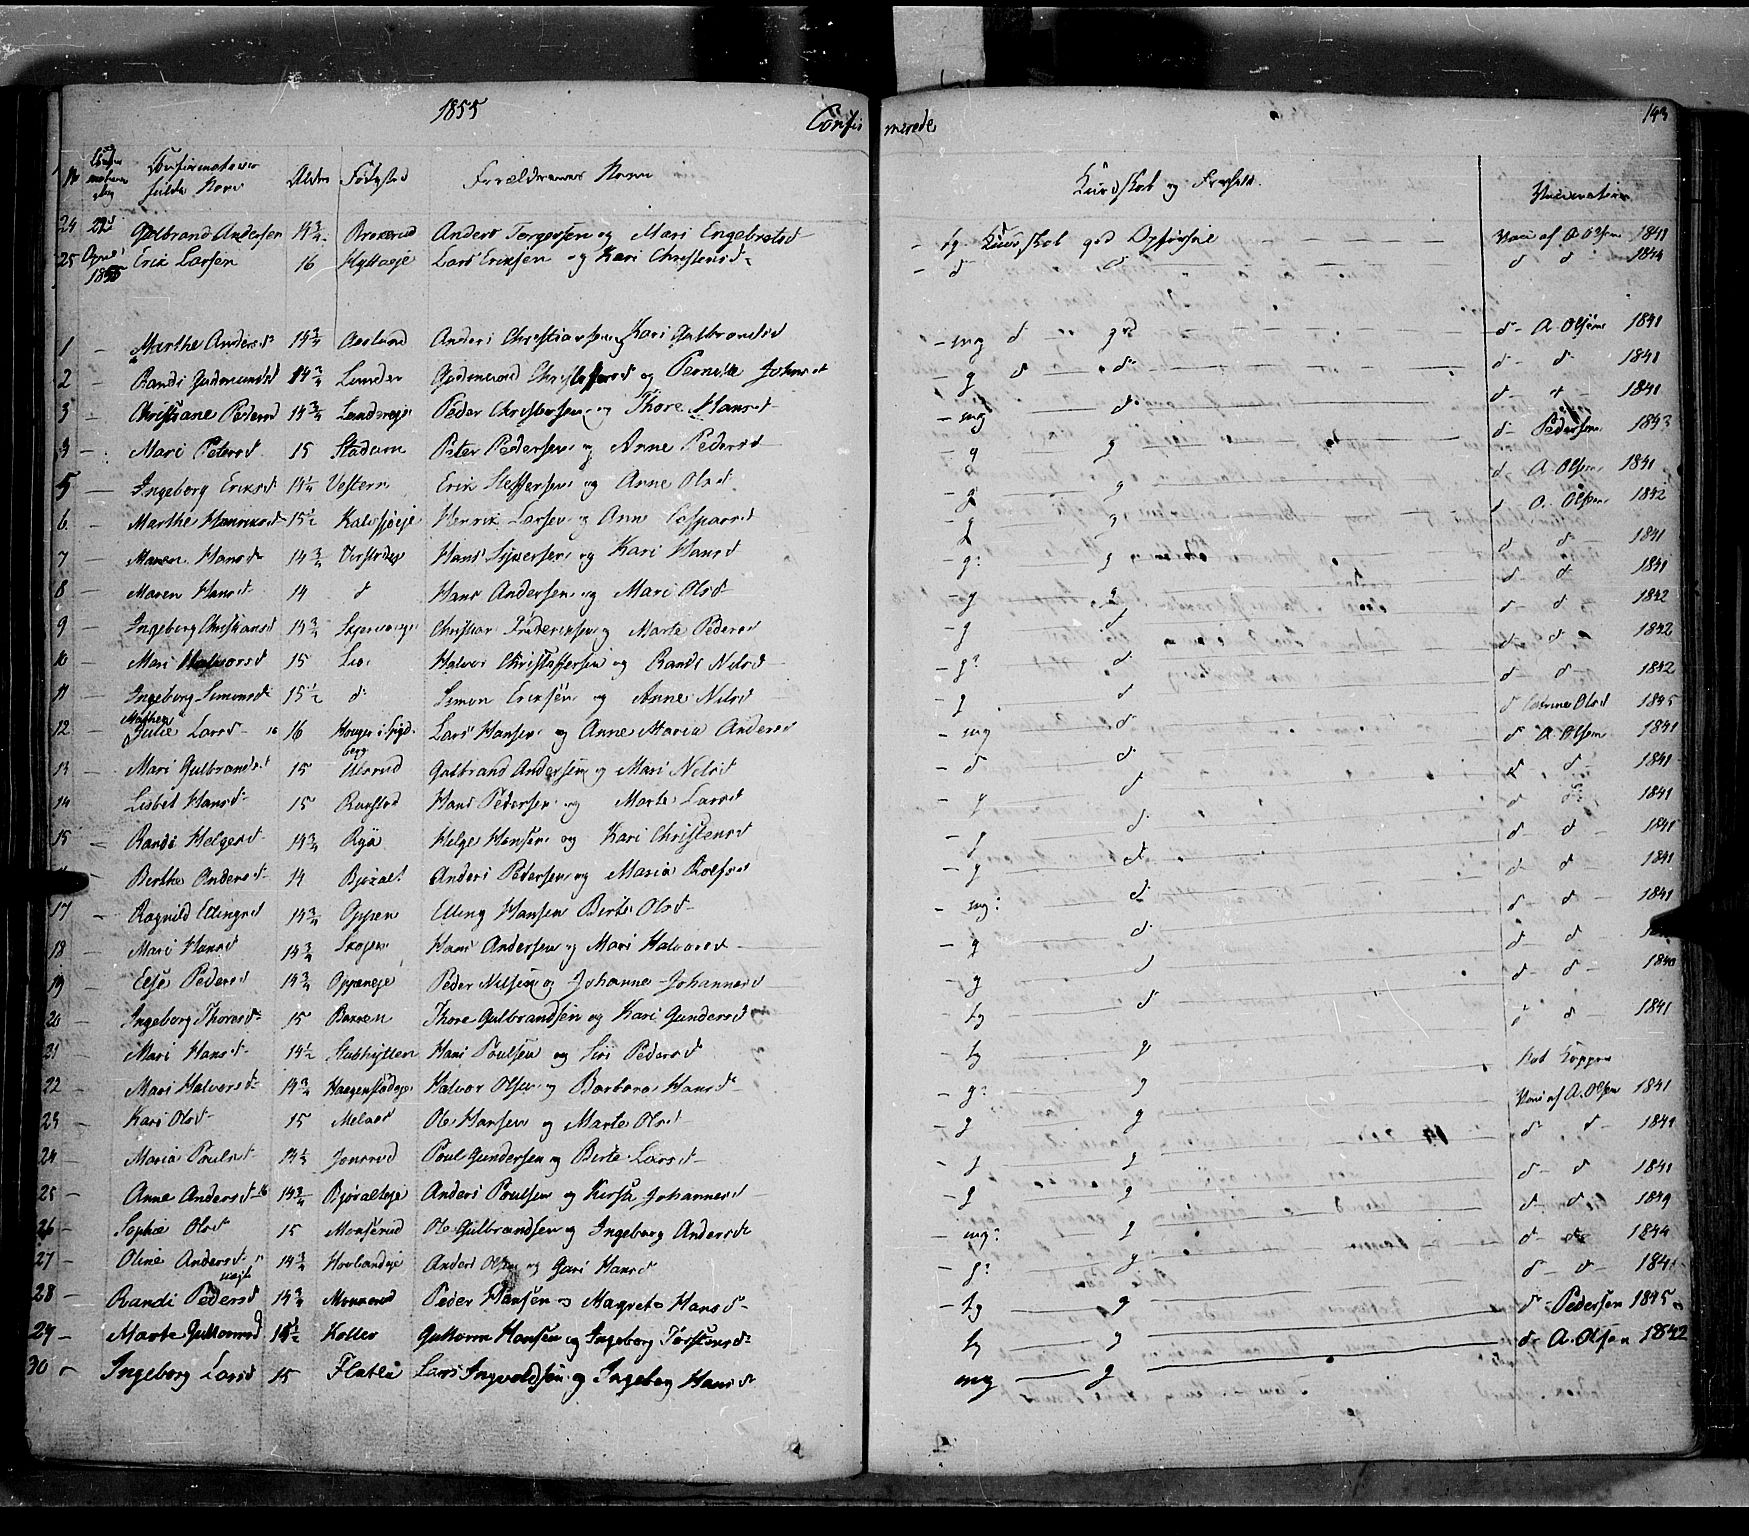 1855 Confirmerede 143
No Confirmationsdag Confirmatens fulde Navn Alder Fødested Forældrenes Navn Kundskab og Forhold. Vaccination
24 22d Gulbrand Andersen 14 3/4 Anders Torgersen og Mari Engebretsd - tg Kundskab god Opførsel Vacc af A Olsen 1841
25 1855 Erik Larsen 16 Hytteeje Lars Eriksen og Kari Christensd - d d d d 1844
1 - Marthe Andersd 14 3/4 Aaslund Anders Christiansen og Kari Gulbrandsd - mg d god d - A. Olsen 1841
2 - Randi Gudmundsd 14 3/4 Lunder Gudmund Christofersd og Pernille Johnsd - g d d d - d 1841
3 - Christiane Pedersd 14 3/4 Lundereje Peder Christensen og Thore Hansd - mg d d d 1841
4 - Mari Petersd 15 Stadum Peter Pedersen og Anne Pedersd - g g d - Pedersen 1843
5 - Ingeborg Eriksd 14 1/2 Vestern Erik Steffensen og Anne Olsd - g g d A. Olsen 1841
6 - Marthe Henriksd 15 1/2 Henrik Larsen og Anne Caspersd - g g d A. Olsen 1842
7 - Maren Hansd 14 3/4 Hans Syversen og Kari Hansd - g: g d d 1841
8 - Maren Hansd 14 d Hans Andersen og Mari Olsd - g g d d 1841
9 - Ingeborg Christiansd 14 3/4 Christian Frederiksen og Marte Pedersd - g d d d 1842
10 - Mari Halvorsd 15 Lie Halvor Christoffersen og Randi Nilsd - g? d d d 1842
11 - Ingeborg Simonsd 15 1/2 d Simon Eriksen og Anne Nilsd - g d d d 1842
12 - Mathea Julie Larsd 16 Lars Hansen og Anne Maria Andersd - mg d d Cathrine Olsd 1845
13 - Mari Gulbrandsd 15 Ulsrud Gulbrand Andersen og Mari Nilsd - d d d A. Olsen 1841
14 Lisbet Hansd 15 Hans Pedersen og Marte Larsd - g d d d 1841
15 - Randi Helgesd 14 3/4 Rya Helge Hansen og Kari Christensd - g d d d 1841
Berthe Andersd 14 Bjøralt Anders Pedersen og Maria Roelfsd - g d d d 1841
17 - Ragnild Ellingsd 14 3/4 Oppen Elling Hansen Birte Olsd - mg: d d d 1841
18 Mari Hansd 14 3/4 Skojen Hans Andersen og Mari Halvorsd - g d d d
19 - Else Pedersd 14 3/4 Oppeneje Peder Nilsen og Johanne Johannesd - g d d d 1840
20 - Ingeborg Thoresd 15 Bakken Thore Gulbrandsen og Kari Gundersd - tg d d d 1841
21 - Mari Hansd 14 1/2 Stubhytten Hans Poulsen og Siri Pedersd - tg g havt Kopper
22 - Mari Halvorsd 14 3/4 Haagenstadeje Halvor Olsen og Barbara Hansd - g: g Vacc af A. Olsen 1841
23 - Kari Olsd 15 Ole Hansen og Marte Olsd - g g d d 1841
24 - Maria Poulsd 14 1/2 Jonsrud Poul Gundersen og Birte Larsd - g g d d 1841
25 - Anne Andersd 14 3/4 Bjøralteje Anders Poulsen og Kirsti Johannesd - g g d d 1849
26 - Sophie Olsd 15 Monserud Ole Gulbrandsen og Ingeborg Andersd - mg: g d d 1844
27 - Oline Andersd 14 3/4 Hovlandeje Anders Olsen og Guri Hansd - g: g d d
28 - Randi Pedersd 14 3/4 Monserud Peder Hansen og Magrete Hansd - tg g d - Pedersen 1845
29 - Marte Guttormsd 14 1/2 Koller Guttorm Hansen og Ingeborg Torstensd - tg g d A. Olsen 1842
30 - Ingeborg Larsd 15 Flatla Lars Ingvoldsen og Ingeborg Hansd mg g